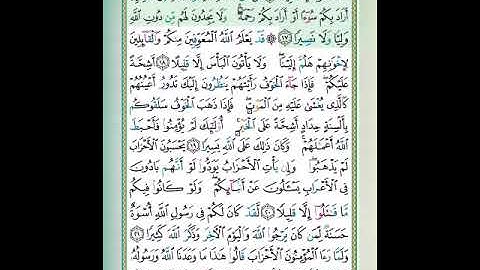 أَرَادَ بِكُمْ سُوٓءًا أَوْ أَرَادَ بِكُمْ رَحْمَةً ۚ وَلَا يَجِدُونَ لَهُم مِّن دُونِ ٱللَّهِ
وَلِيًّا وَلَا نَصِيرًا ١٧ ۞ قَدْ يَعْلَمُ ٱللَّهُ ٱلْمُعَوِّقِينَ مِنكُمْ وَٱلْقَآئِلِينَ
لِإِخْوَٰنِهِمْ هَلُمَّ إِلَيْنَا ۖ وَلَا يَأْتُونَ ٱلْبَأْسَ إِلَّا قَلِيلًا ١٨ أَشِحَّةً
عَلَيْكُمْ ۖ فَإِذَا جَآءَ ٱلْخَوْفُ رَأَيْتَهُمْ يَنظُرُونَ إِلَيْكَ تَدُورُ أَعْيُنُهُمْ
كَٱلَّذِى يُغْشَىٰ عَلَيْهِ مِنَ ٱلْمَوْتِ ۖ فَإِذَا ذَهَبَ ٱلْخَوْفُ سَلَقُوكُم
بِأَلْسِنَةٍ حِدَادٍ أَشِحَّةً عَلَى ٱلْخَيْرِ ۚ أُو۟لَٰٓئِكَ لَمْ يُؤْمِنُوا۟ فَأَحْبَطَ
ٱللَّهُ أَعْمَٰلَهُمْ ۚ وَكَانَ ذَٰلِكَ عَلَى ٱللَّهِ يَسِيرًا ١٩ يَحْسَبُونَ ٱلْأَحْزَابَ
لَمْ يَذْهَبُوا۟ ۖ وَإِن يَأْتِ ٱلْأَحْزَابُ يَوَدُّوا۟ لَوْ أَنَّهُم بَادُونَ
فِى ٱلْأَعْرَابِ يَسْـَٔلُونَ عَنْ أَنۢبَآئِكُمْ ۖ وَلَوْ كَانُوا۟ فِيكُم
مَّا قَٰتَلُوٓا۟ إِلَّا قَلِيلًا ٢٠ لَّقَدْ كَانَ لَكُمْ فِى رَسُولِ ٱللَّهِ أُسْوَةٌ
حَسَنَةٌ لِّمَن كَانَ يَرْجُوا۟ ٱللَّهَ وَٱلْيَوْمَ ٱلْءَاخِرَ وَذَكَرَ ٱللَّهَ كَثِيرًا ٢١
وَلَمَّا رَءَا ٱلْمُؤْمِنُونَ ٱلْأَحْزَابَ قَالُوا۟ هَٰذَا مَا وَعَدَنَا ٱللَّهُ وَرَسُولُهُۥ